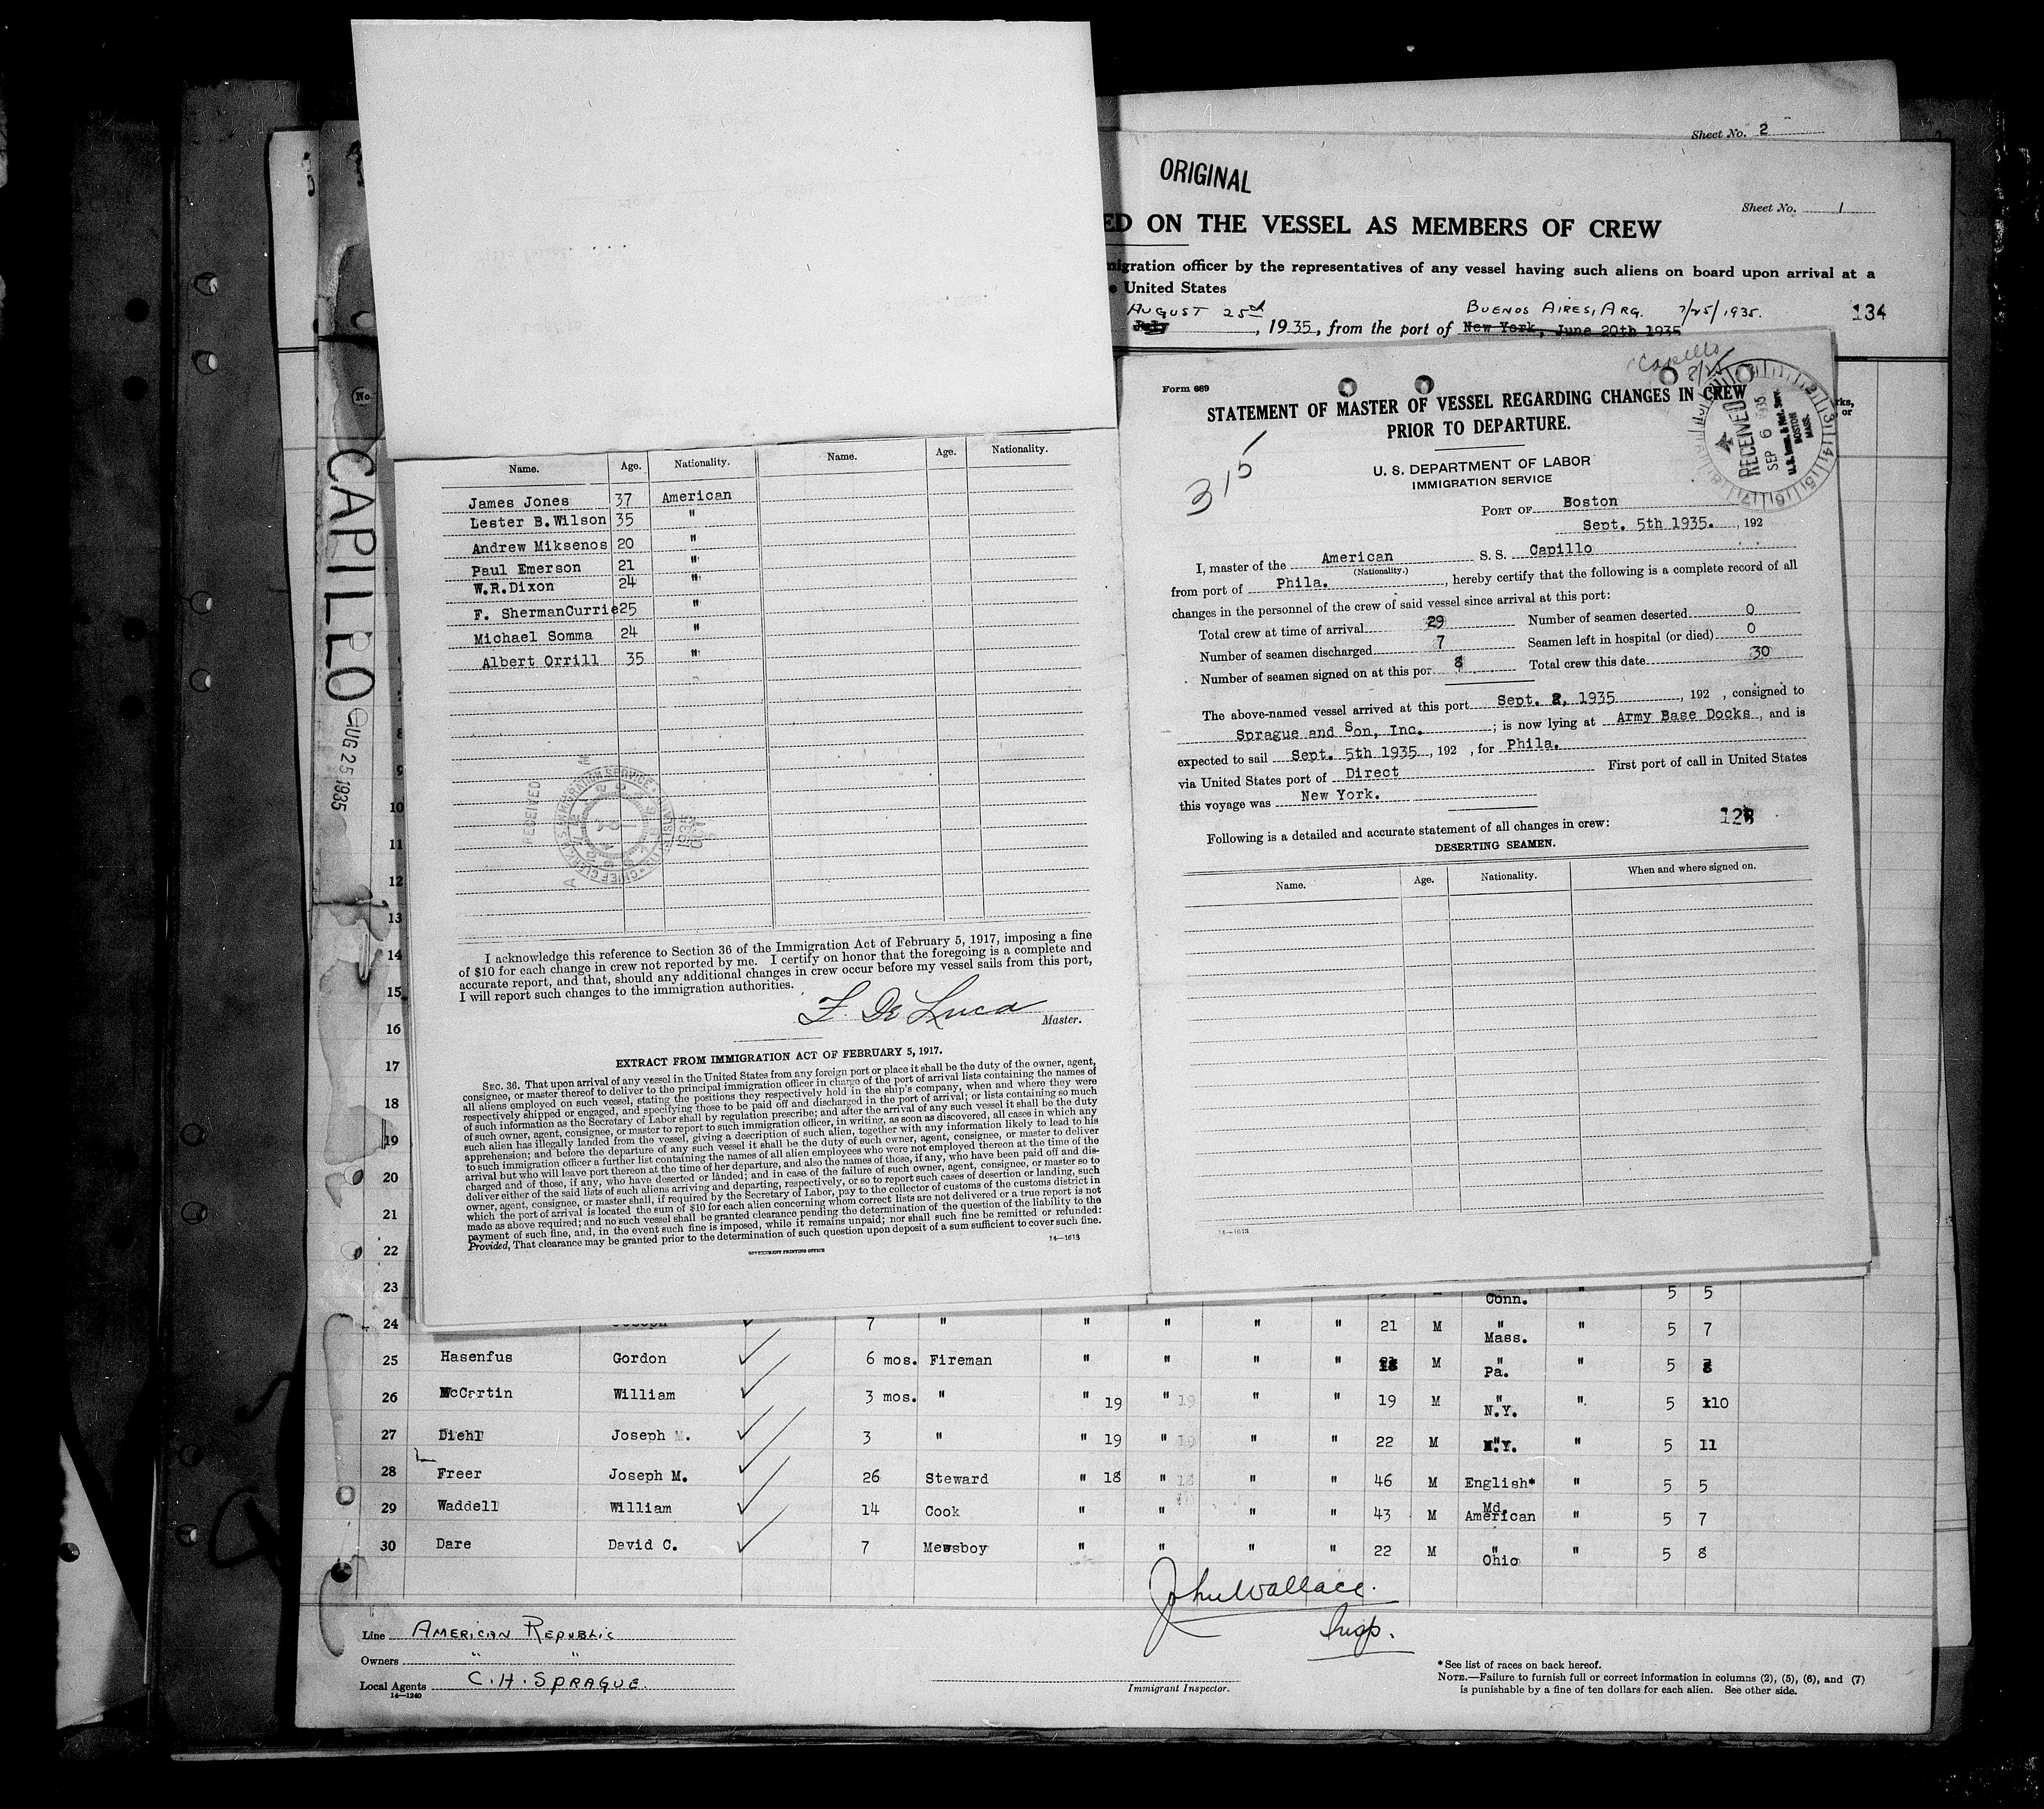 Sheet No. 2
ORIGINAL
Sheet No. 1
ED ON THE VESSEL AS MEMBERS OF CREW
migration officer by the representatives of any vessel having such aliens on board upon arrival at a
e United States
AUGUST 25th BUENOS AIRES, ARG. 7/25/1935.
July, 1935, from the port of New York, June 20th 1935
134
No.
rks,
or
CAPILLO
AUG 25 1935
Name. Age. Nationality. Name. Age. Nationality.
James Jones 37 American
Lester B. Wilson 35 "
Andrew Miksenos 20 "
Paul Emerson 21 "
W.R.Dixon 24 "
F. ShermanCurrie 25 "
Michael Somma 24 "
Albert Orrill 35 "
RECEIVED
I acknowledge this reference to Section 36 of the Immigration Act of February 5, 1917, imposing a fine
of $10 for each change in crew not reported by me. I certify on honor that the foregoing is a complete and
accurate report, and that, should any additional changes in crew occur before my vessel sails from this port,
I will report such changes to the immigration authorities.
F. De Luca
Master.
EXTRACT FROM IMMIGRATION ACT OF FEBRUARY 5, 1917.
SEC. 36. That upon arrival of any vessel in the United States from any foreign port or place it shall be the duty of the owner, agent,
consignee, or master thereof to deliver to the principal immigration officer in charge of the port of arrival lists containing the names of
all aliens employed on such vessel, stating the positions they respectively hold in the ship's company, when and where they were
respectively shipped or engaged, and specifying those to be paid off and discharged in the port of arrival; or lists containing so much
of such information as the Secretary of Labor shall by regulation prescribe; and after the arrival of any such vessel it shall be the duty
of such owner, agent, consignee, or master to report to such immigration officer, in writing, as soon as discovered, all cases in which any
such alien has illegally landed from the vessel, giving a description of such alien, together with any information likely to lead to his
apprehension; and before the departure of any such vessel it shall be the duty of such owner, agent, consignee, or master to deliver
to such immigration officer a further list containing the names of all alien employees who were not employed thereon at the time of the
arrival but who will leave port thereon at the time of her departure, and also the names of those, if any, who have been paid off and dis-
charged and of those, if any, who have deserted or landed; and in case of the failure of such owner, agent, consignee, or master so to
deliver either of the said lists of such aliens arriving and departing, respectively, or so to report such cases of desertion or landing, such
owner, agent, consignee, or master shall, if required by the Secretary of Labor, pay to the collector of customs of the customs district in
which the port of arrival is located the sum of $10 for each alien concerning whom correct lists are not delivered or a true report is not
made as above required; and no such vessel shall be granted clearance pending the determination of the question of the liability to the
payment of such fine, and, in the event such fine is imposed, while it remains unpaid; nor shall such fine be remitted or refunded:
Provided, That clearance may be granted prior to the determination of such question upon deposit of a sum sufficient to cover such fine.
GOVERNMENT PRINTING OFFICE
14—1613
Form 689
Capillo
8/25
STATEMENT OF MASTER OF VESSEL REGARDING CHANGES IN CREW
PRIOR TO DEPARTURE.
RECEIVED
SEP 6 1935
U. S. Imm. & Nat. Serv.
BOSTON
MASS.
315
U. S. DEPARTMENT OF LABOR
IMMIGRATION SERVICE
PORT OF Boston
Sept. 5th 1935. , 192
I, master of the American S. S. Capillo
(Nationality.)
from port of Phila. , hereby certify that the following is a complete record of all
changes in the personnel of the crew of said vessel since arrival at this port:
Total crew at time of arrival 29 Number of seamen deserted 0
Number of seamen discharged 7 Seamen left in hospital (or died) 0
Number of seamen signed on at this por 8 Total crew this date 30
The above-named vessel arrived at this port Sept. 2, 1935 , 192 , consigned to
Sprague and Son, Inc. ; is now lying at Army Base Docks , and is
expected to sail Sept. 5th 1935 , 192 , for Phila.
via United States port of Direct First port of call in United States
this voyage was New York.
128
Following is a detailed and accurate statement of all changes in crew:
DESERTING SEAMEN.
Name. Age. Nationality. When and where signed on.
14—1613
8
9
10
11
12
13
14
15
16
17
18
19
20
21
22
23 Conn. " 5 5
24 Joseph 7 " " " " " 21 M " Mass. " 5 7
25 Hasenfus Gordon 6 mos. Fireman " " " " M " Pa. " 5
26 McCartin William 3 mos. " " 19 " 19 " " 19 M " N.Y. " 5 10
27 Diehl Joseph M. 3 " " 19 " 19 " " 22 M " N.Y. " 5 11
28 Freer Joseph M. 26 Steward " 18 " 18 " " 46 M English* " 5 5
29 Waddell William 14 Cook " " " " 43 M Md. American " 5 7
30 Dare David C. 7 Messboy " " " " 22 M " Ohio " 5 8
John Wallace.
Insp.
Line AMERICAN REPUBLIC
Owners " "
Local Agents C. H. SPRAGUE.
14—1240
Immigrant Inspector.
* See list of races on back hereof.
NOTE.—Failure to furnish full or correct information in columns (2), (5), (6), and (7)
is punishable by a fine of ten dollars for each alien. See other side.